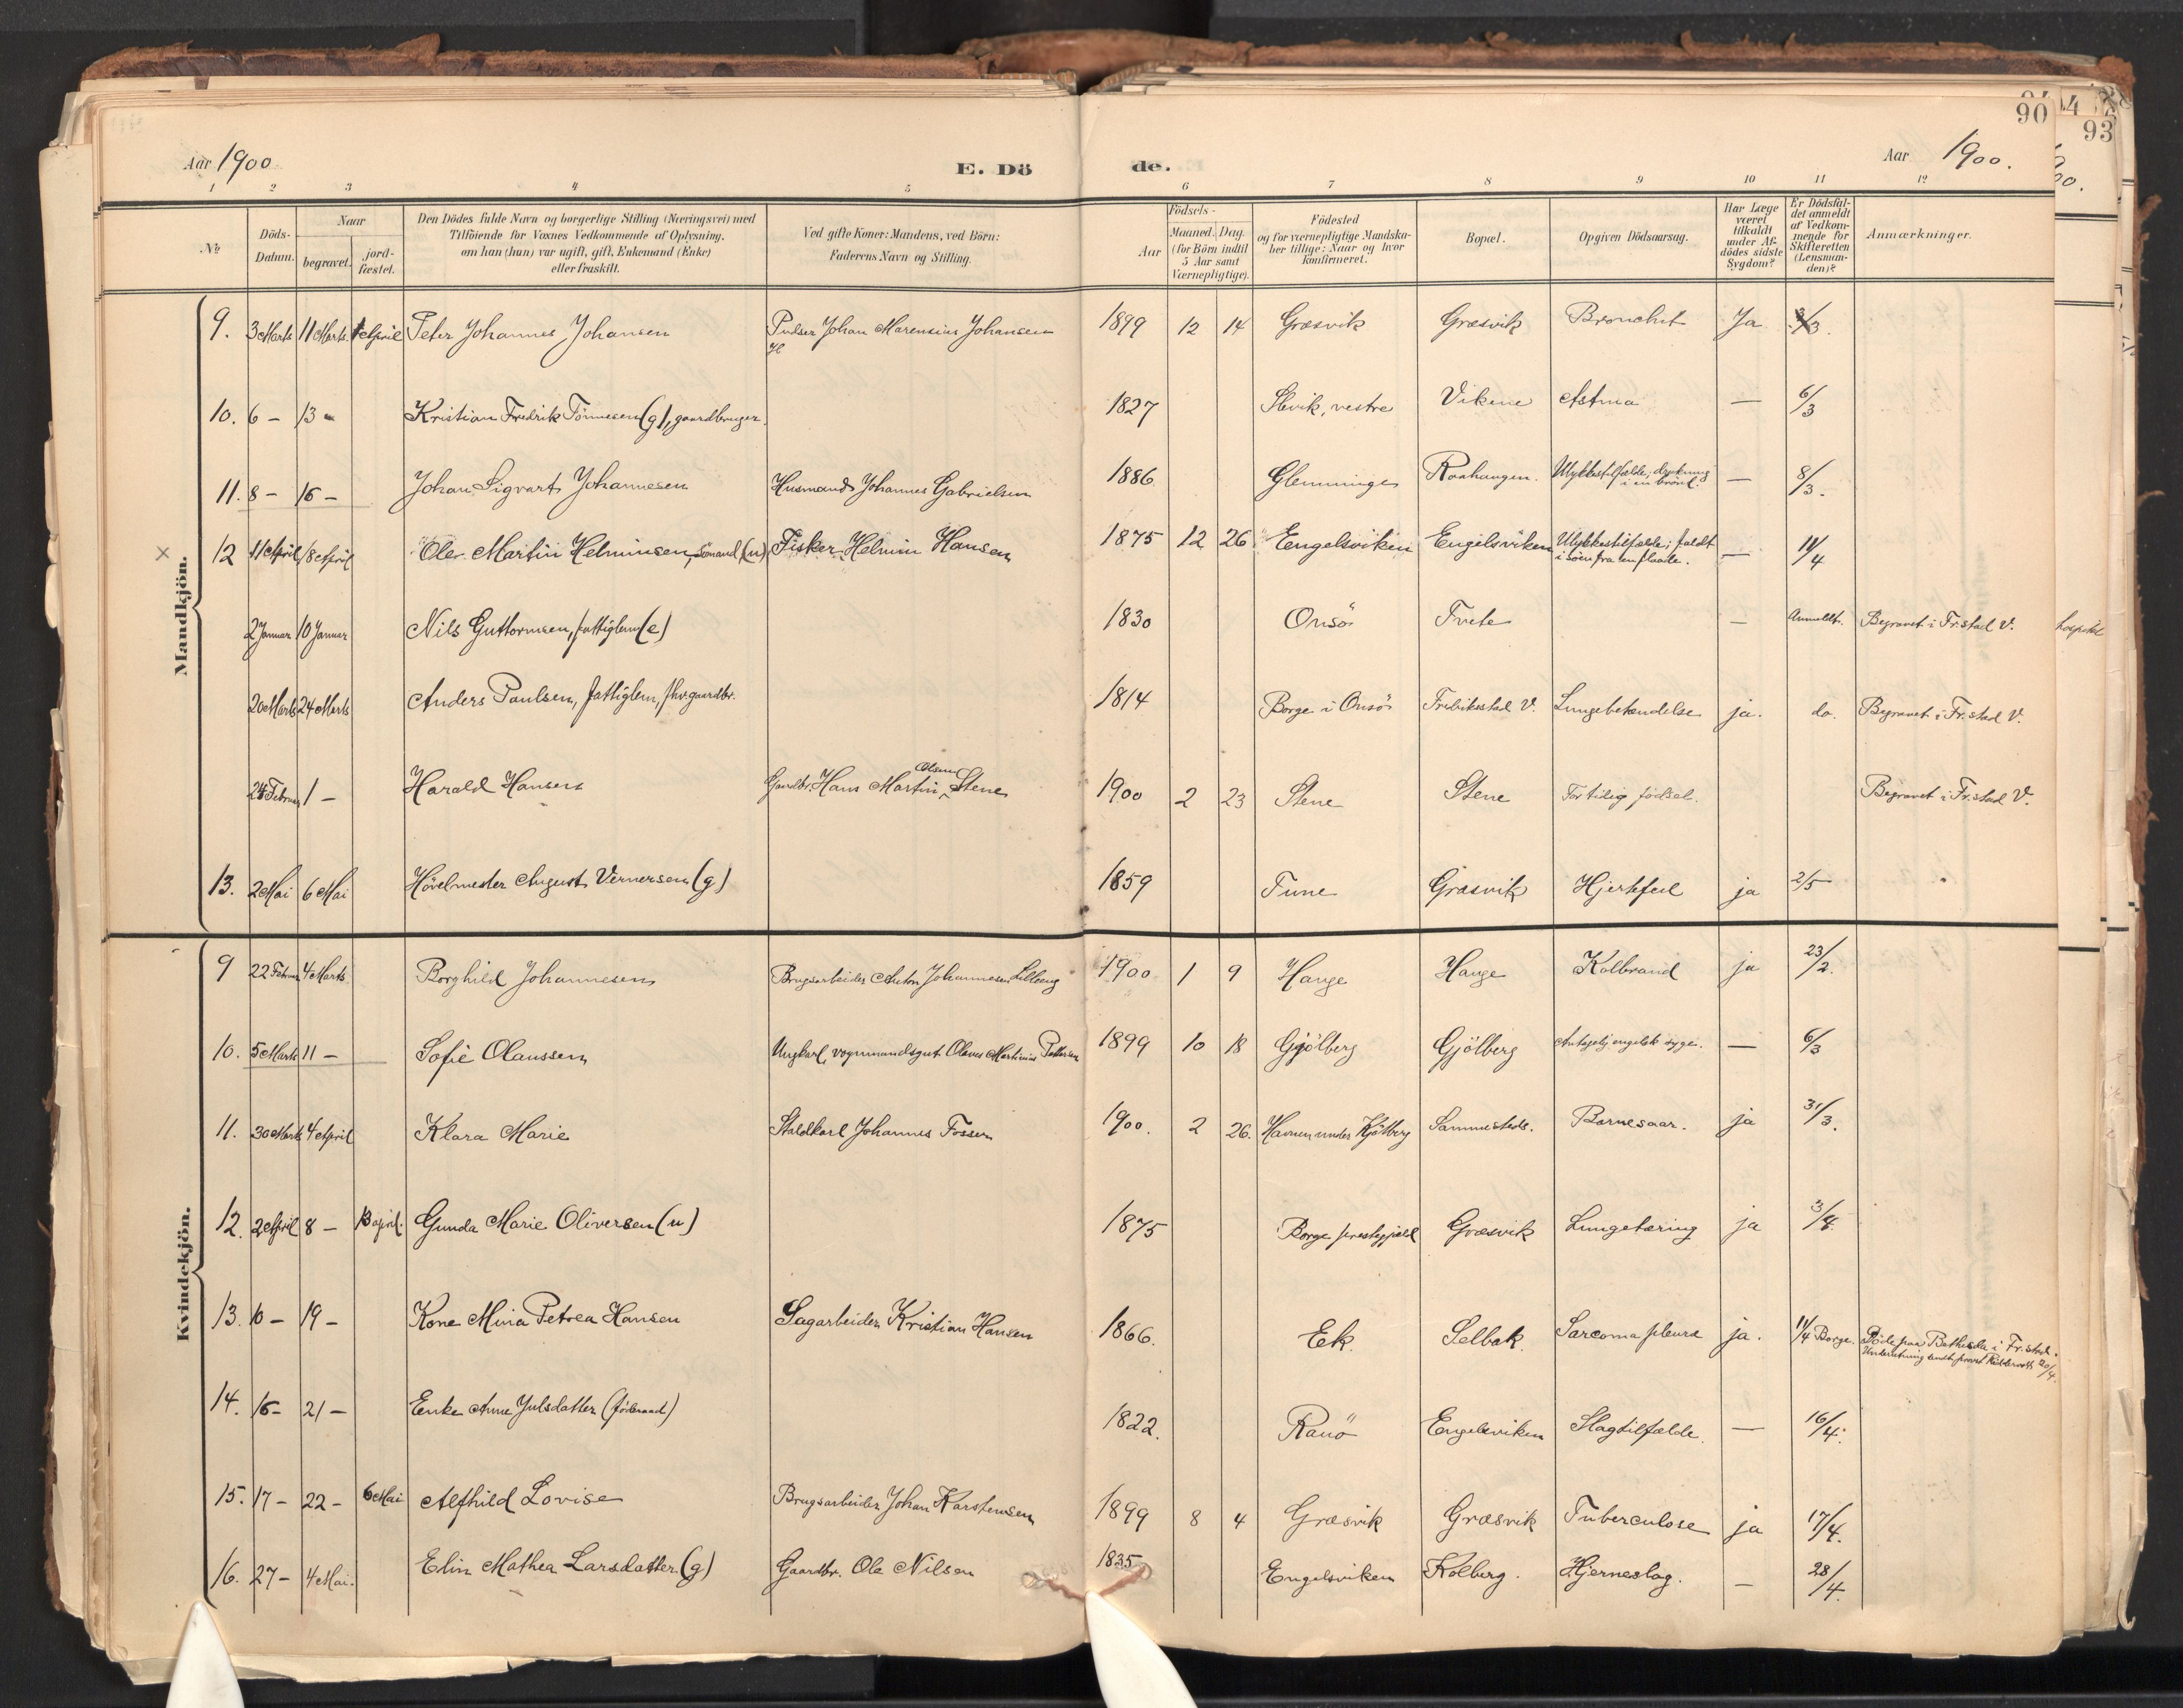 90
93
Aar 1900
E. Dö de.
Aar 1900.
1 2 3 4 5 6 7 8 9 10 11 12
No
Döds-Datum.
Naar
begravet.
jordfæstet.
Den Dödes fulde Navn og borgerlige Stilling (Næringsvei) med
Tilföiende for Voxnes Vedkommende af Oplysning,
om han (hun) var ugift, gift, Enkemand (Enke)
eller fraskilt.
Ved gifte Koner: Mandens, ved Börn:
Faderens Navn og Stilling.
Födsels-
Aar
Maaned. Dag.
(for Börn indtil
5 Aar samt
Værnepligtige).
Födested
og for værnepligtige Mandskaber tillige: Naar og hvor
konfirmeret.
Bopæl.
Opgiven Dödsaarsag.
Har Læge
været
tilkaldt
under Afdödes sidste
Sygdom?
Er Dödsfaldet anmeldt
af Vedkommende for
Skifteretten
(Lensmanden)?
Anmærkninger.
Mandkjön.
9. 3 Marts 11 Marts 1 April Peter Johannes Johansen Pudser Johan Marensius Johansen 1899 12 14 Græsvik Græsvik Bronchit Ja 3/3.
10. 6 - 13 - Kristian Fredrik Tönnesen (g), gaardbruger. 1827 Slevik, vestre Vikene Astma — 6/3
11. 8 - 16 - Johan Sigvart Johannesen Husmand Johannes Gabrielsen 1886 Glemminge Ulykkestilfælde; drukning — 8/3.
i en brönd.
× 12 11 April 18 April Ole Martin Helminsen, sömand (u) Fisker Helmin Hansen 1875 12 26 Engelsviken Engelsviken Ulykkestilfælde; faldt — 11/4
i söen fra en flaade.
2 Januar 10 Januar Nils Guttormsen, fattiglem (e) 1830 Onsö Tvete — Anmeldt. Begravet i Fr.stad V. hospital
20 Marts 24 Marts Anders Paulsen, fattiglem, fhv. gaardbr. 1814 Borge i Onsö Fredriksstad V. Lungebetændelse ja. do. Begravet i Fr.stad V.
24 Februar 1 - Harald Hansen Gaardbr. Hans Martin Olsen Stene 1900 2 23 Stene Stene For tidlig födsel. Begravet i Fr.stad V.
13. 2 Mai 6 Mai Hövelmester August Vernersen (g) 1859 Tune Græsvik Hjertefeil ja 2/5
Kvindekjön.
9 22 Februar 4 Marts Borghild Johannesen Brugsarbeider Anton Johannesen Lilleeng 1900 1 9 Hauge Hauge Kolbrand ja 23/2.
10. 5 Marts 11 - Sofie Olaussen Ungkarl, vognmandsgut Olaus Martinius Pettersen 1899 10 18 Gjölberg Gjölberg Antagelig engelsk syge. — 6/3
11. 30 Marts 4 April Klara Marie Staldkarl Johannes Fossen 1900. 2 26. Havnen under Kjölberg Sammesteds. Barnesaar. ja 31/3.
12. 2 April 8 - 13 april. Gunda Marie Oliversen (u) 1875 Borge prestegjæld Græsvik Lungetæring ja 3/4.
13. 10 - 19 - Kone Mina Petrea Hansen Sagarbeider Kristian Hansen 1866. Eek Selbak. Sarcoma pleura ja. 11/4 Borge. Döde paa Bethesda i Fr.stad.
Underretning sendt provst 20/4.
14. 16 - 21 - Enke Anne Julsdatter (föderaad) 1822. Rauö Engelsviken Slagtilfælde. — 16/4.
15. 17 - 22 - 6 Mai Alfhild Lovise Brugsarbeider Johan Karstensen 1899 8 4 Græsvik Græsvik Tuberculose ja 17/4.
16. 27 - 4 Mai. Elin Mathea Larsdatter (g) Gaardbr. Ole Nilsen 1835 Engelsviken Kolberg. Hjerneslag. — 28/4.